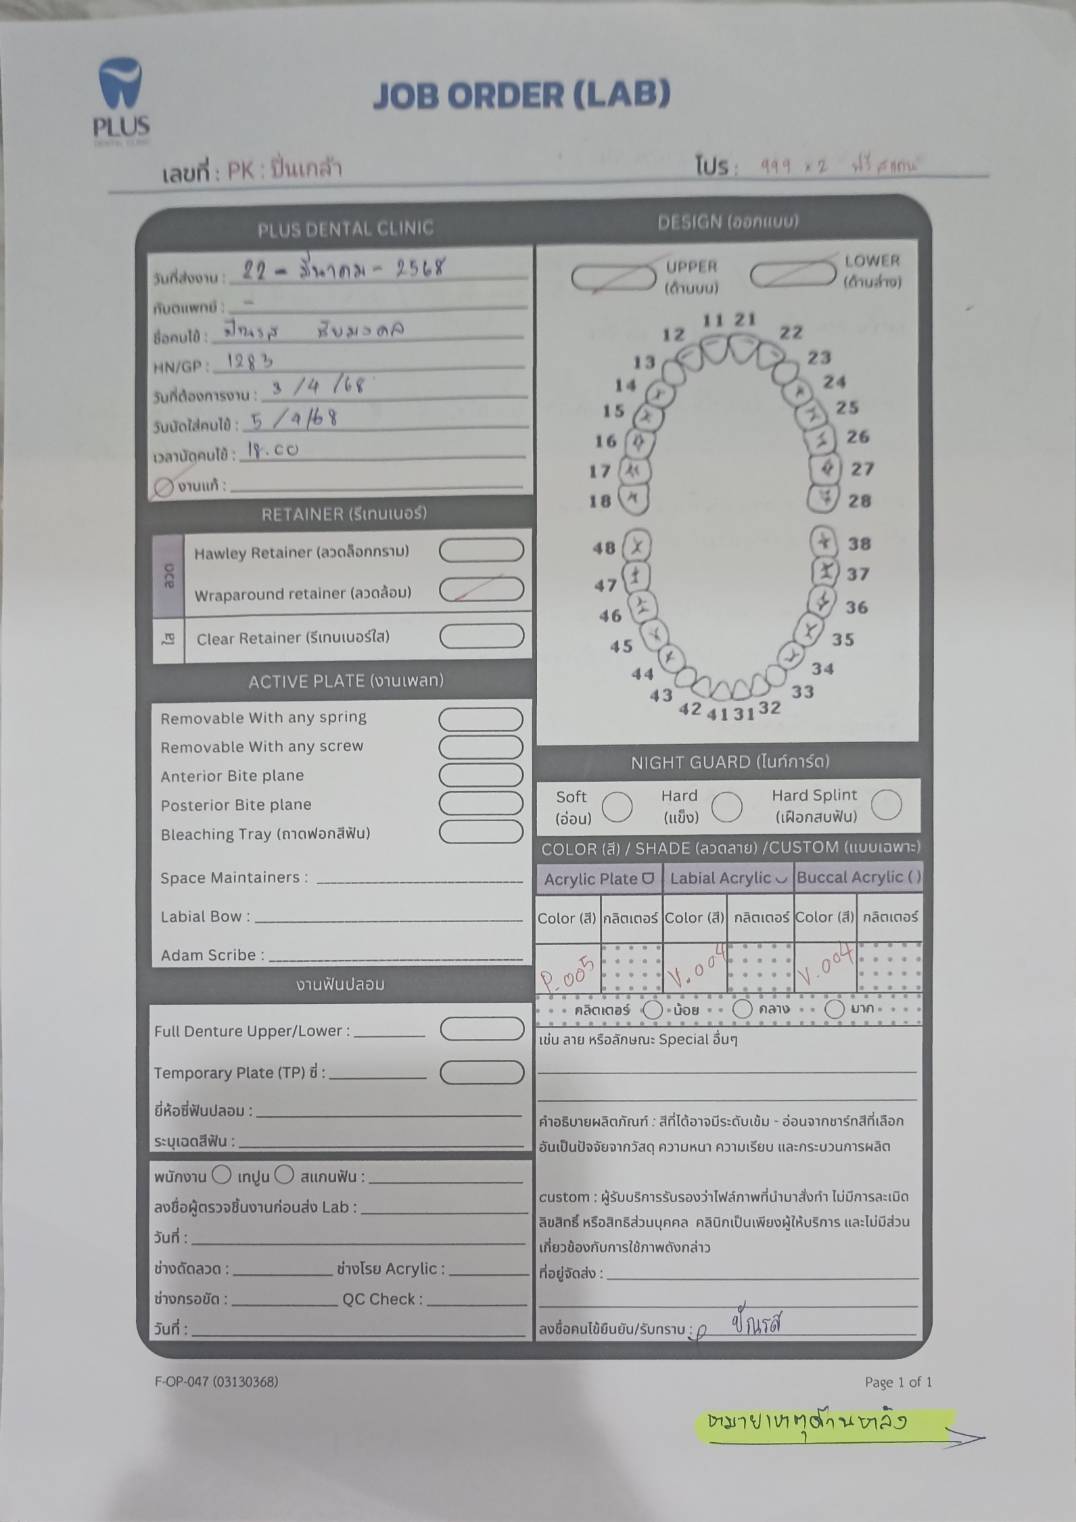 PLUS
JOB ORDER (LAB)
เลขที่ : PK : ปิ่นเกล้า
โปร : 999 x 2 ฟรีสแกน
PLUS DENTAL CLINIC
วันที่ส่งงาน : 22 - มีนาคม - 2568
ทันตแพทย์ : -
ชื่อคนไข้ :
HN/GP : 1283
วันที่ต้องการงาน : 3 /4 /68
วันนัดใส่คนไข้ : 5 / 4 /68
เวลานัดคนไข้ : 18.00
งานแก้ :
DESIGN (ออกแบบ)
UPPER (ด้านบน)
LOWER (ด้านล่าง)
11 21
12 22
13 23
14 24
15 25
16 26
17 27
18 28
48 38
47 37
46 36
45 35
44 34
43 33
42 41 31 32
RETAINER (รีเทนเนอร์)
ลวด
Hawley Retainer (ลวดล็อกกราม)
Wraparound retainer (ลวดล้อม)
ใส
Clear Retainer (รีเทนเนอร์ใส)
ACTIVE PLATE (งานเพลท)
Removable With any spring
Removable With any screw
Anterior Bite plane
Posterior Bite plane
Bleaching Tray (ถาดฟอกสีฟัน)
Space Maintainers :
Labial Bow :
Adam Scribe :
งานฟันปลอม
Full Denture Upper/Lower :
Temporary Plate (TP) ซี่ :
ยี่ห้อซี่ฟันปลอม :
ระบุเฉดสีฟัน :
พนักงาน เทปูน สแกนฟัน :
ลงชื่อผู้ตรวจชิ้นงานก่อนส่ง Lab :
วันที่ :
ช่างดัดลวด : ช่างโรย Acrylic :
ช่างกรอขัด : QC Check :
วันที่ :
NIGHT GUARD (ไนท์การ์ด)
Soft (นิ่ม) Hard (แข็ง) Hard Splint (เฝือกสบฟัน)
COLOR (สี) / SHADE (ลวดลาย) /CUSTOM (แบบเฉพาะ)
Acrylic Plate Labial Acrylic Buccal Acrylic ( )
Color (สี) กลิตเตอร์ Color (สี) กลิตเตอร์ Color (สี) กลิตเตอร์
P.005 V.004 V.004
กลิตเตอร์ น้อย กลาง มาก
เช่น ลาย หรือลักษณะ Special อื่นๆ
คำอธิบายผลิตภัณฑ์ : สีที่ได้อาจมีระดับเข้ม - อ่อนจากชาร์ทสีที่เลือก
อันเป็นปัจจัยจากวัสดุ ความหนา ความเรียบ และกระบวนการผลิต
custom : ผู้รับบริการรับรองว่าไฟล์ภาพที่นำมาสั่งทำ ไม่มีการละเมิด
ลิขสิทธิ์ หรือสิทธิส่วนบุคคล คลินิกเป็นเพียงผู้ให้บริการ และไม่มีส่วน
เกี่ยวข้องกับการใช้ภาพดังกล่าว
ที่อยู่จัดส่ง :
ลงชื่อคนไข้ยืนยัน/รับทราบ :
F-OP-047 (03130368)
Page 1 of 1
หมายเหตุด้านหลัง